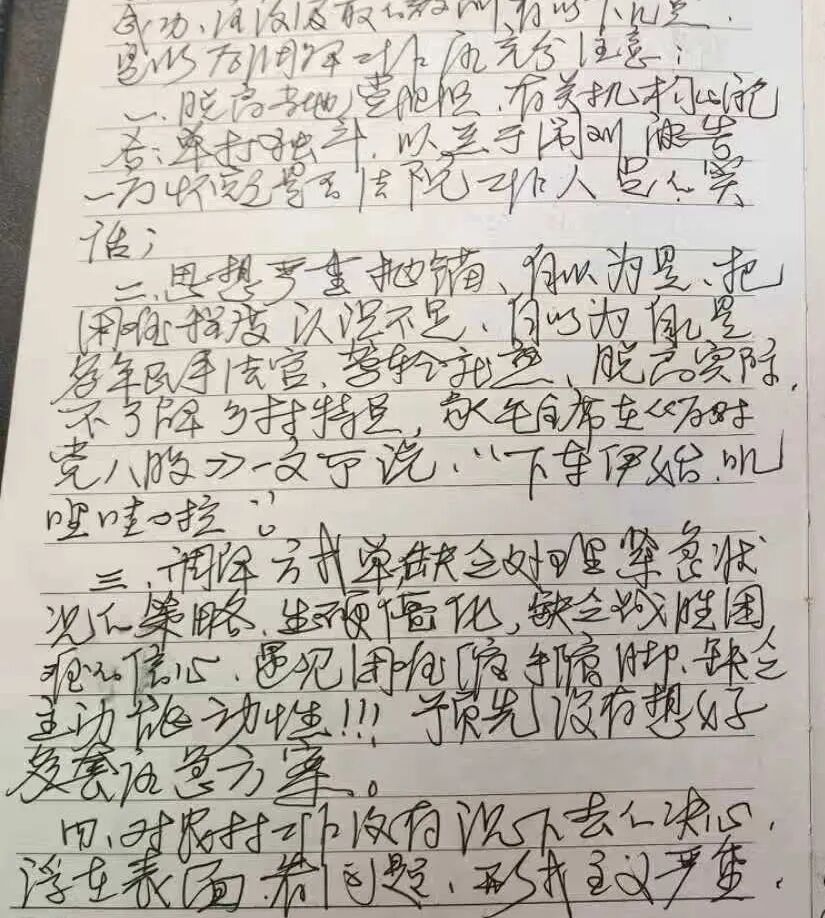 成功,应该汲取的教训有以下几点,
是以后调解工作应充分注意:
一、脱离当地党组织、有关机构的配
合;单打独斗,以至于闹到被告
一方怀疑是否法院工作人员的实
话;
二、思想严重抛锚、自以为是、把
困难程度认识不足、自以为自己是
多年民事法官、驾轻就熟、脱离实际,
不了解乡村特点,就毛主席在《反对
党八股》一文中说:“下车伊始,叽
哩哇啦”;
三、调解方式单,缺乏处理紧急状
况的策略、生硬僵化,缺乏战胜困
难的信心、遇见困难缩手缩脚、缺乏
主动能动性!!!预先没有想好
多套应急方案。
四、对农村工作没有沉下去的决心,
浮在表面看问题、形式主义严重,